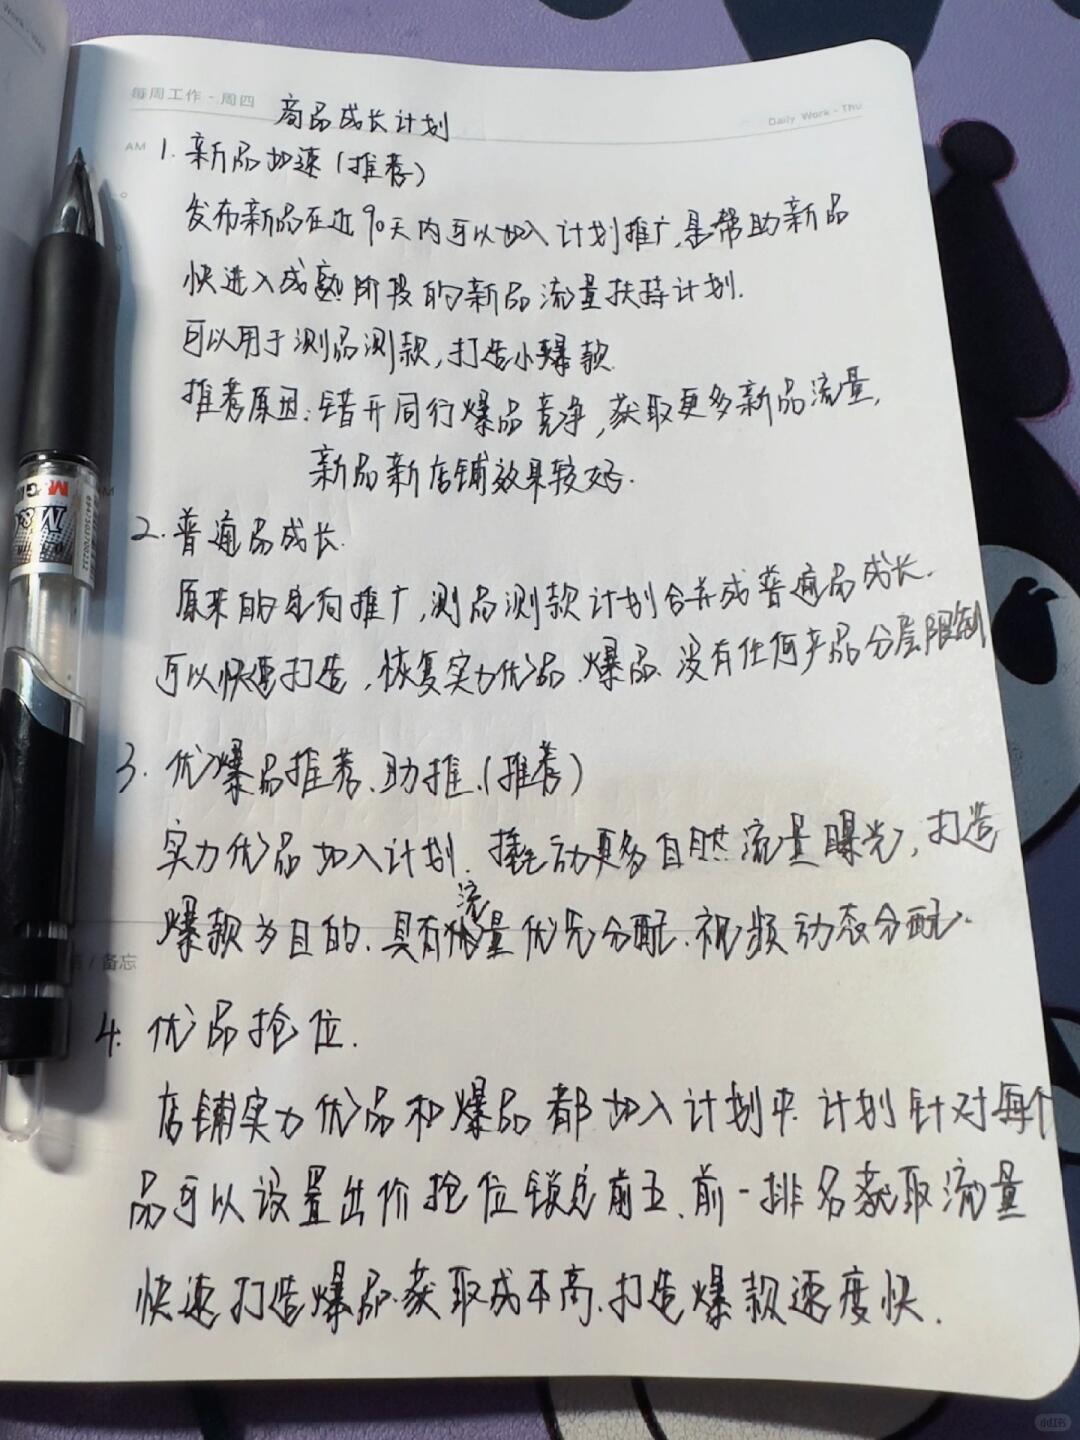 每周工作 - 周四
Daily Work - Thu
商品成长计划
AM
1. 新品加速（推荐）
发布新品在近90天内可以加入计划推广,是帮助新品
快进入成熟阶段的新品流量扶持计划.
可以用于测品测款,打造小爆款.
推荐原因:错开同行爆品竞争,获取更多新品流量,
新品新店铺效果较好.
2. 普通品成长.
原来的定向推广,测品测款计划合并成普通品成长.
可以快速打造,恢复实力优品、爆品.没有任何产品分层限制
3. 优爆品推荐、助推.（推荐）
实力优品加入计划.撬动更多自然流量曝光,打造
爆款为目的.具有流量优先分配.视频动态分配.
/ 备忘
4. 优品抢位.
店铺实力优品和爆品都加入计划中.计划针对每个
品可以设置出价抢位锁定前五、前一排名获取流量
快速打造爆品.获取成本高.打造爆款速度快.